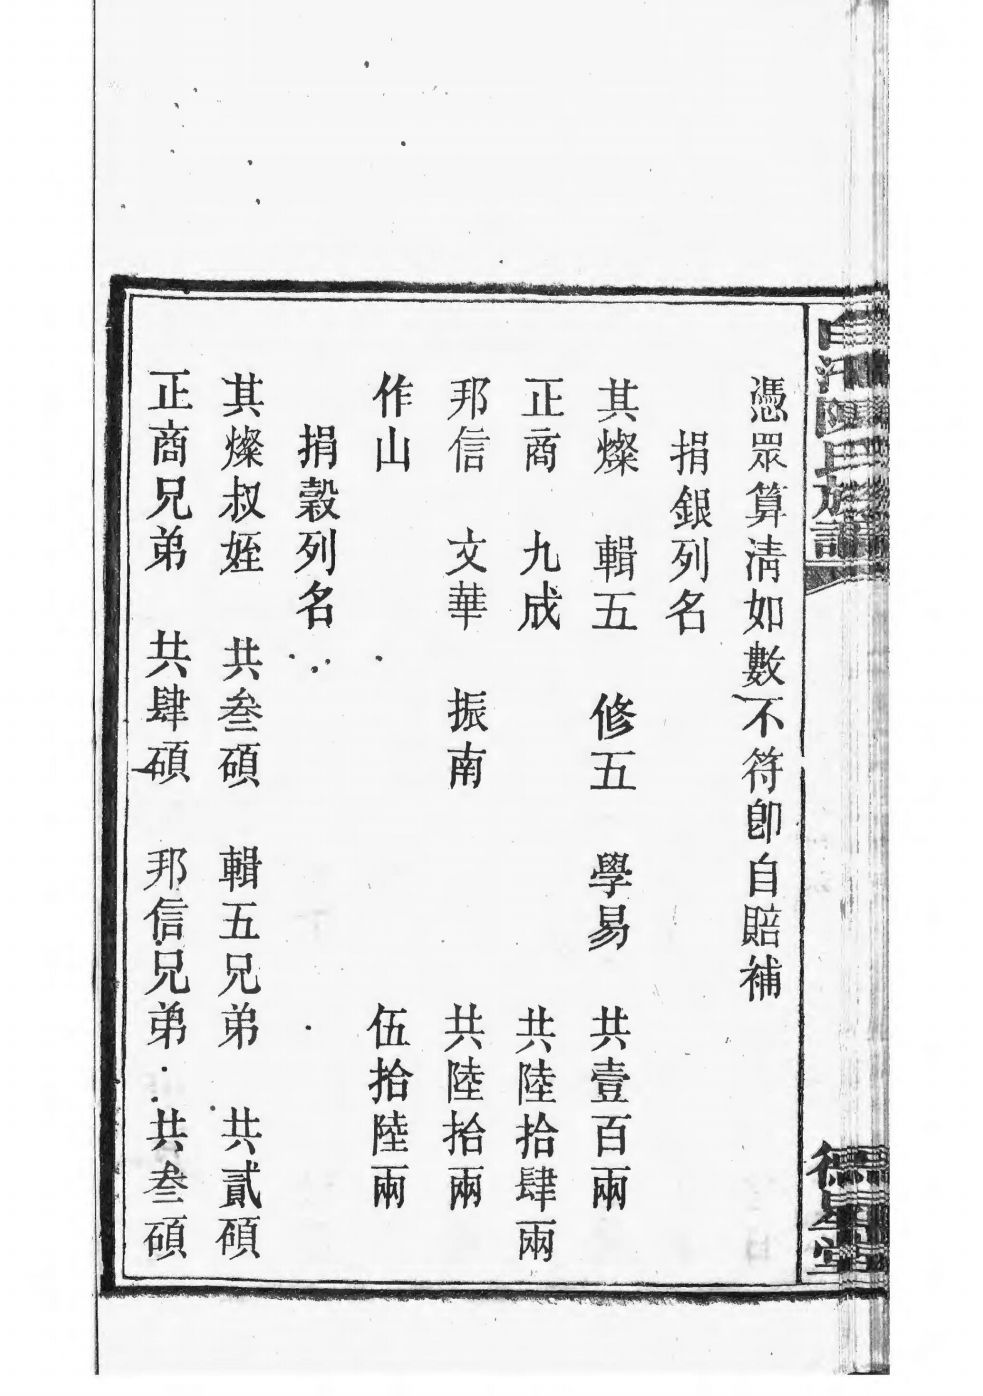 憑眾算淸如數不符卽自賠補
捐銀列名
其燦 輯五 修五 學易 共壹百兩
正商 九成 共陸拾肆兩
邦信 文華 振南 共陸拾兩
作山 伍拾陸兩
捐穀列名
其燦叔姪 共叄碩 輯五兄弟 共貳碩
正商兄弟 共肆碩 邦信兄弟 共叄碩
陳氏族譜
德星堂